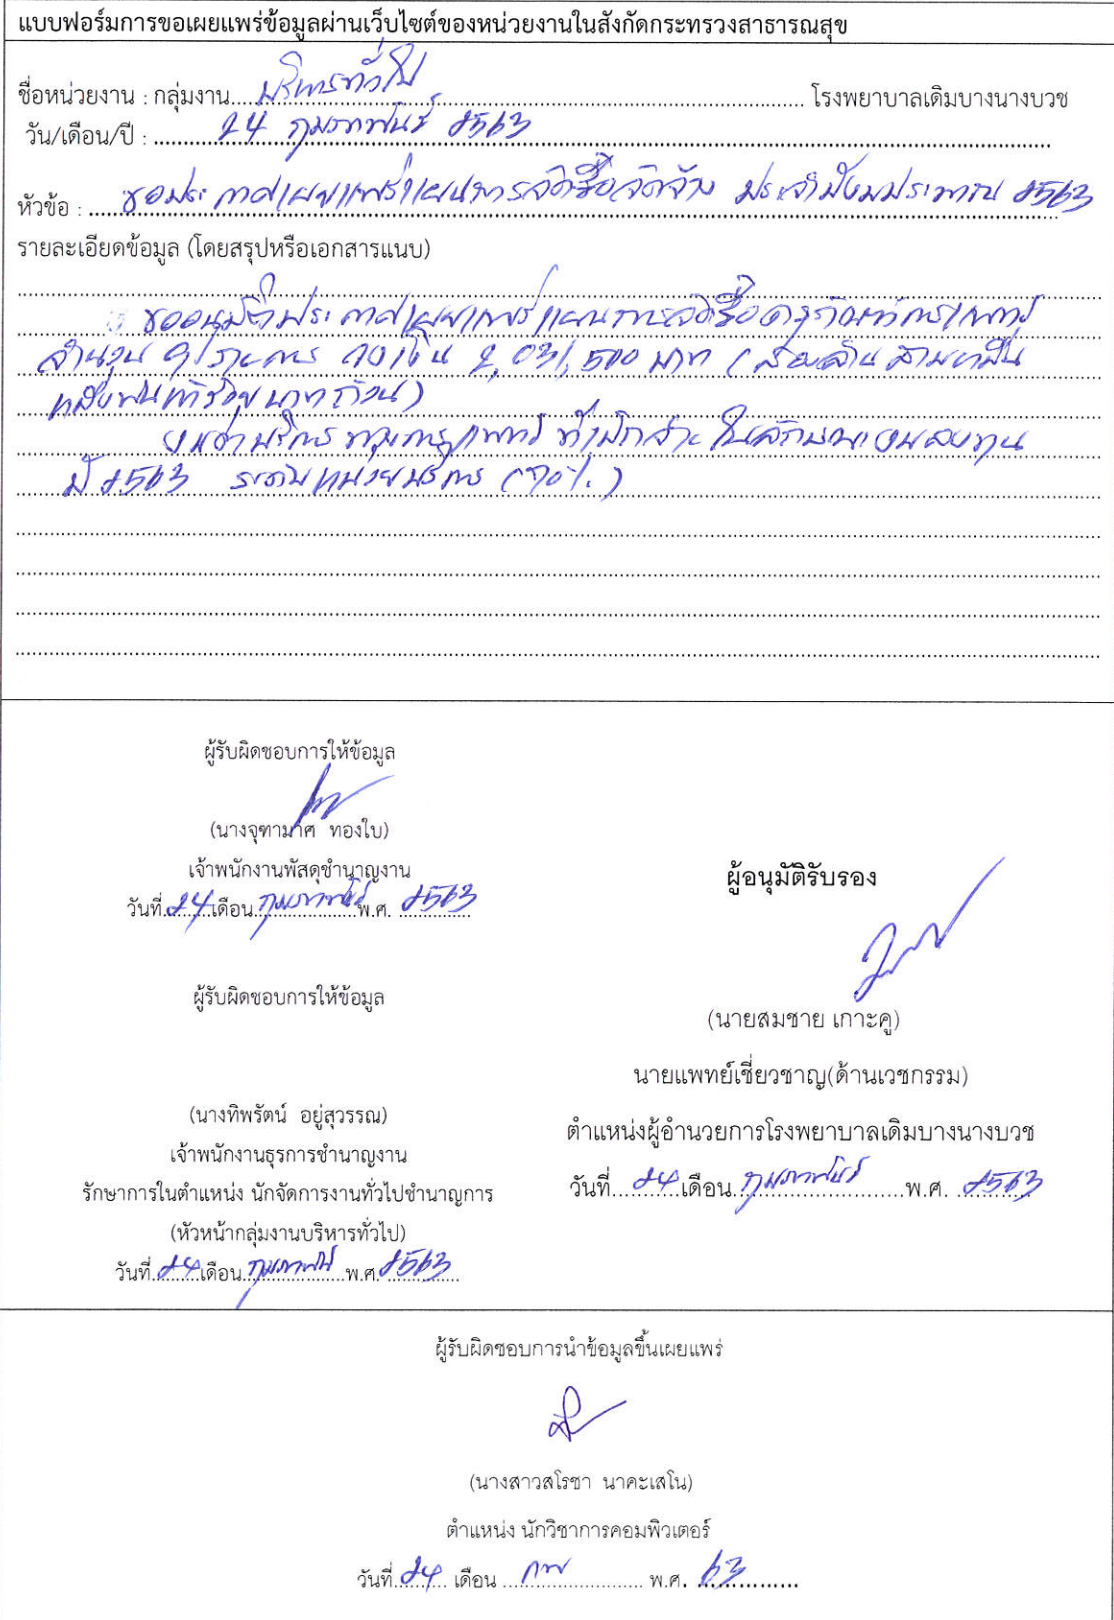 แบบฟอร์มการขอเผยแพร่ข้อมูลผ่านเว็บไซต์ของหน่วยงานในสังกัดกระทรวงสาธารณสุข
ชื่อหน่วยงาน : กลุ่มงาน บริหารทั่วไป โรงพยาบาลเดิมบางนางบวช
วัน/เดือน/ปี : 24 กุมภาพันธ์ 2563
หัวข้อ : ขอประกาศเผยแพร่แผนการจัดซื้อจัดจ้าง ประจำปีงบประมาณ 2563
รายละเอียดข้อมูล (โดยสรุปหรือเอกสารแนบ)
ขออนุมัติประกาศเผยแพร่แผนการจัดซื้อครุภัณฑ์การแพทย์
จำนวน 9 รายการ 2,031,500 บาท (สองล้านสามหมื่น
หนึ่งพันห้าร้อยบาทถ้วน)
งบค่าบริการทางการแพทย์ที่เบิกจ่ายในลักษณะงบลงทุน
ปี 2563 ระดับหน่วยบริการ (70%)
ผู้รับผิดชอบการให้ข้อมูล
(นางจุฑามาศ ทองใบ)
เจ้าพนักงานพัสดุชำนาญงาน
วันที่ 24 เดือน กุมภาพันธ์ พ.ศ. 2563
ผู้รับผิดชอบการให้ข้อมูล
(นางทิพรัตน์ อยู่สุวรรณ)
เจ้าพนักงานธุรการชำนาญงาน
รักษาการในตำแหน่ง นักจัดการงานทั่วไปชำนาญการ
(หัวหน้ากลุ่มงานบริหารทั่วไป)
วันที่ 24 เดือน กุมภาพันธ์ พ.ศ. 2563
ผู้อนุมัติรับรอง
(นายสมชาย เกาะคู)
นายแพทย์เชี่ยวชาญ(ด้านเวชกรรม)
ตำแหน่งผู้อำนวยการโรงพยาบาลเดิมบางนางบวช
วันที่ 24 เดือน กุมภาพันธ์ พ.ศ. 2563
ผู้รับผิดชอบการนำข้อมูลขึ้นเผยแพร่
(นางสาวสโรชา นาคะเสโน)
ตำแหน่ง นักวิชาการคอมพิวเตอร์
วันที่ 24 เดือน กพ พ.ศ. 63